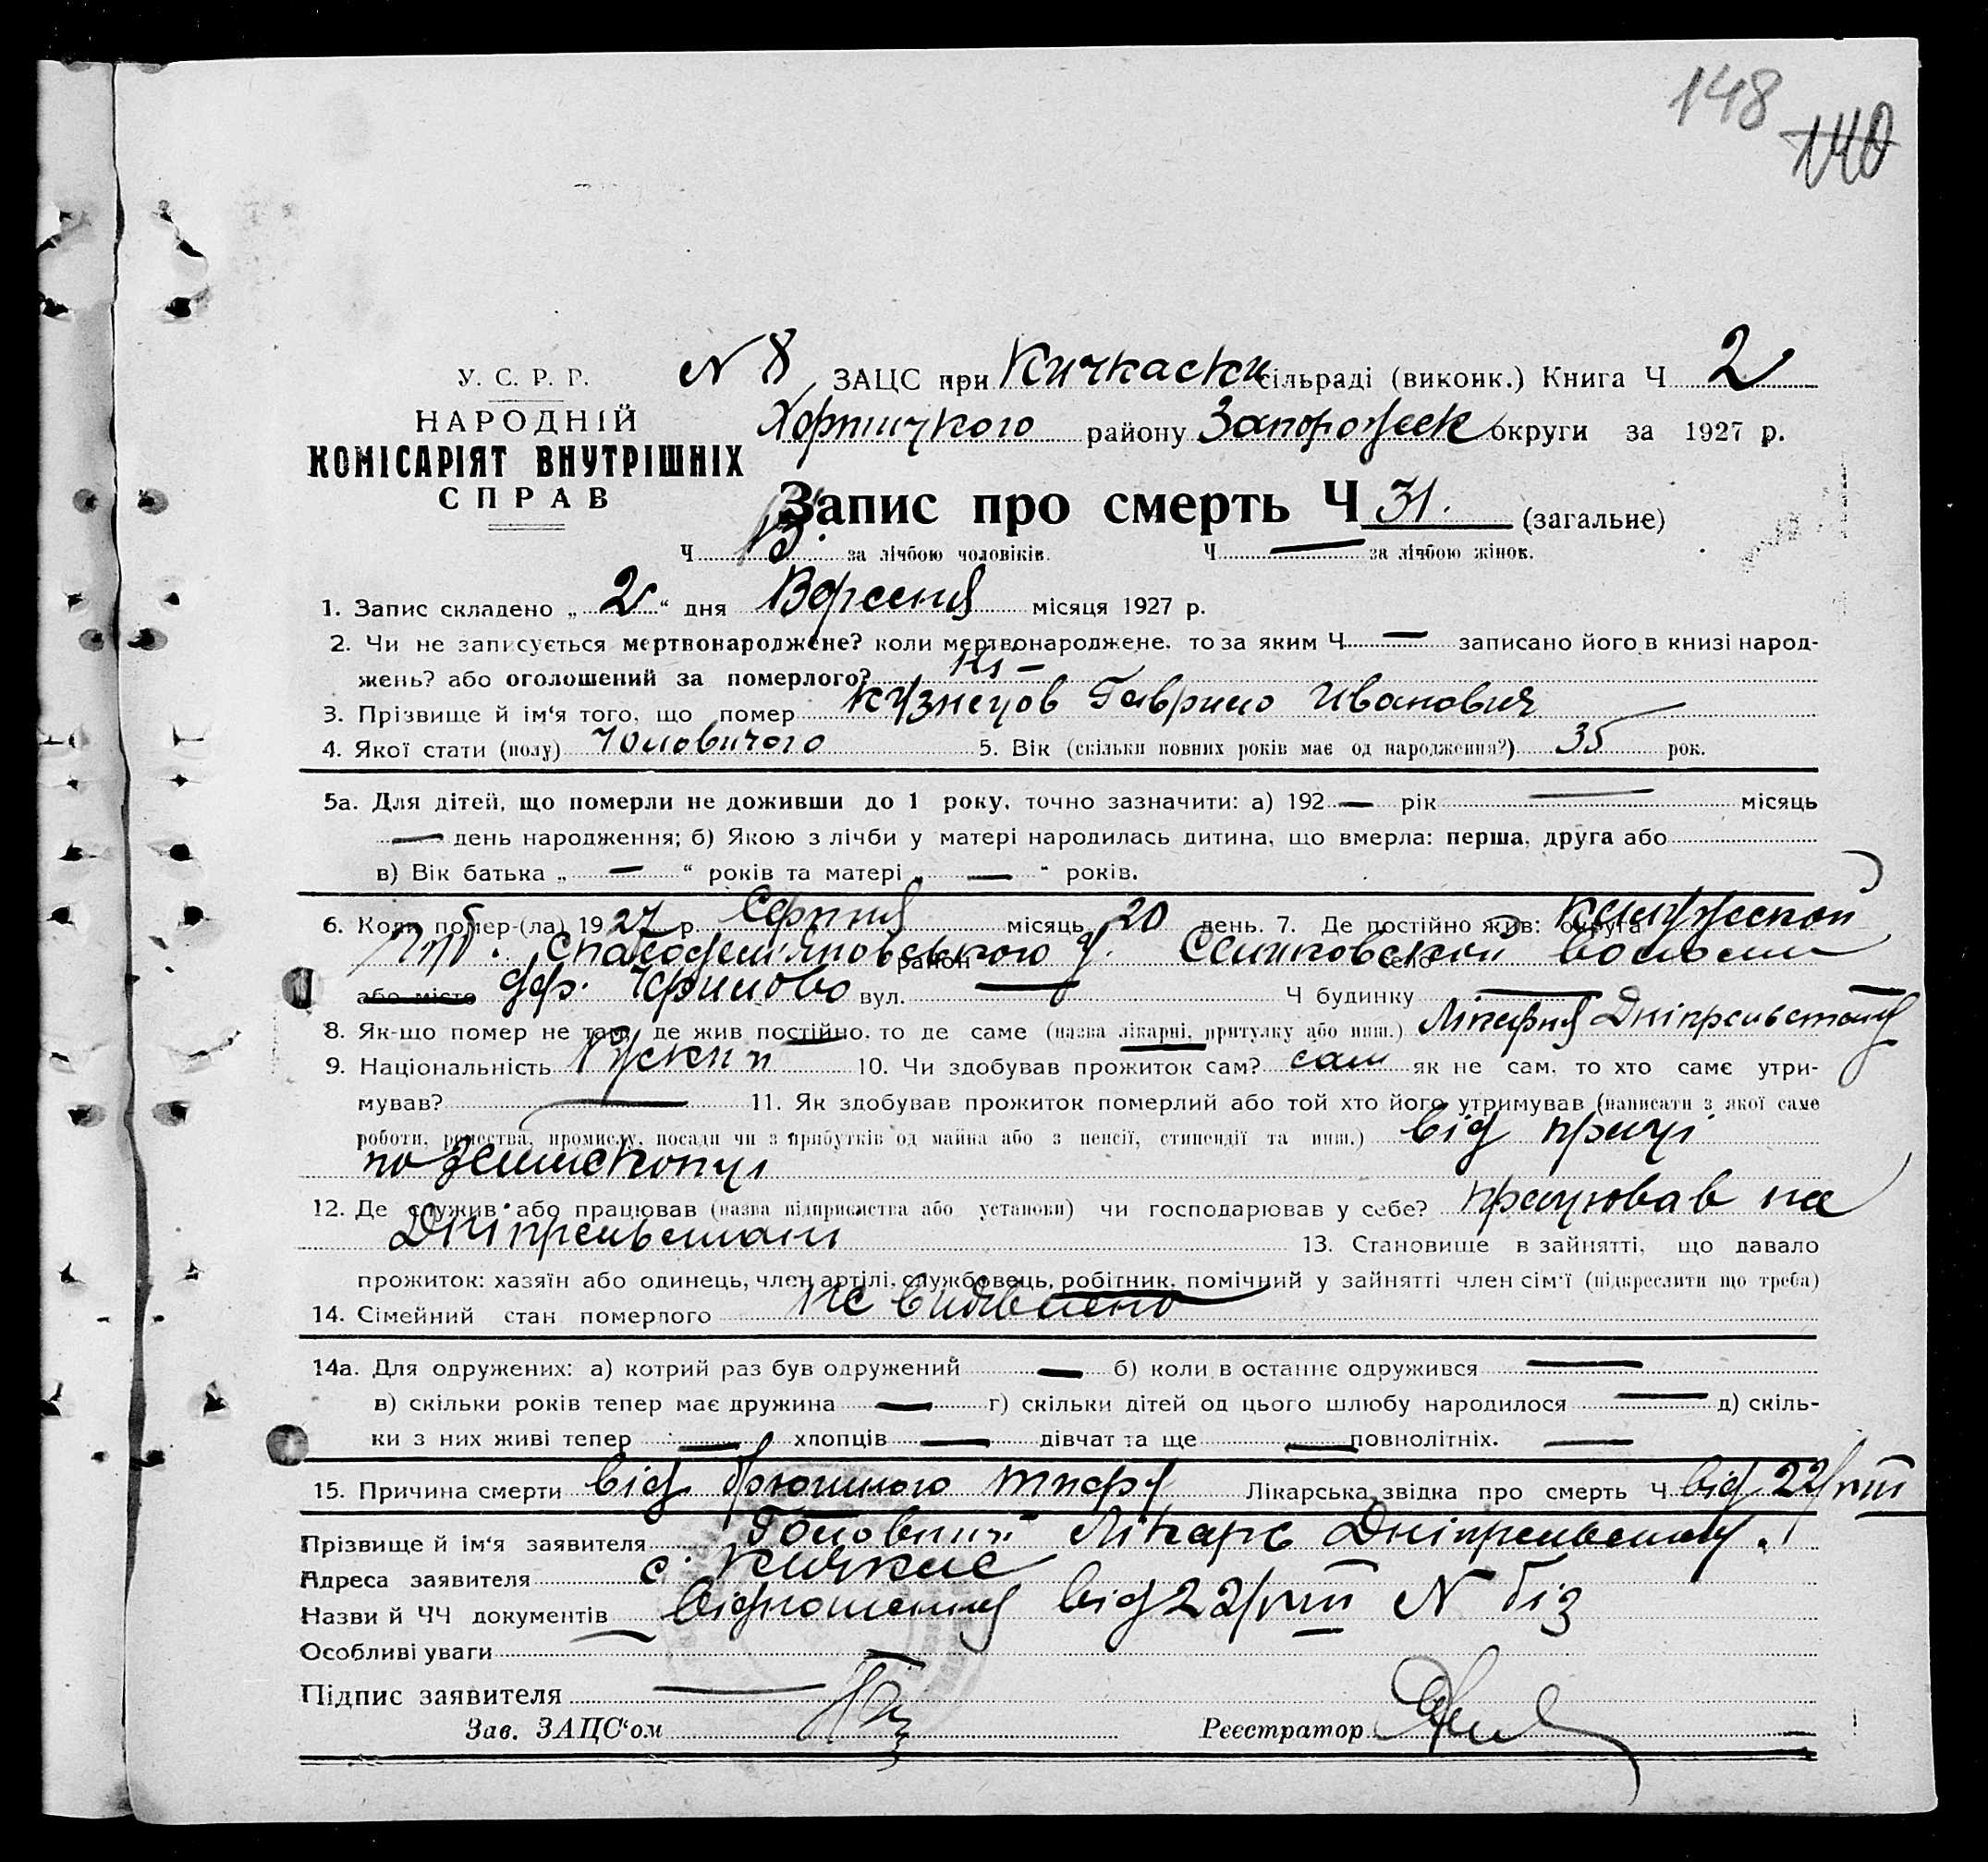 148
140
У. С. Р. Р.
НАРОДНІЙ
КОМІСАРІЯТ ВНУТРІШНІХ
СПРАВ
N 8 ЗАЦС при Кичкаски сільраді (виконк.) Книга Ч 2
Хортицкого району Запорожск округи за 1927 р.
Запис про смерть Ч 31. (загальне)
Ч за лічбою чоловіків. Ч — за лічбою жінок.
1. Запис складено „ 2 “ дня Вересня місяця 1927 р.
2. Чи не записується мертвонароджене? коли мертвонароджене, то за яким Ч — записано його в книзі народ-
жень? або оголошений за померлого? Ні —
3. Прізвище й ім‘я того, що помер Кузнецов Гаврило Иванович
4. Якої стати (полу) Чоловичого 5. Вік (скільки повних років має од народження?) 35 рок.
5а. Для дітей, що померли не доживши до 1 року, точно зазначити: а) 192 — рік — місяць
— день народження; б) Якою з лічби у матері народилась дитина, що вмерла: перша, друга або
в) Вік батька „ — “ років та матері „ — “ років.
6. Коли помер-(ла) 1927 р. Серпня місяць 20 день. 7. Де постійно жив: округа Калужской
губ. район село
або місто дер. вул. — Ч будинку —
8. Як-що помер не там, де жив постійно, то де саме (назва лікарні, притулку або инш.) Лікарня Дніпрельстану
9. Національність Руский 10. Чи здобував прожиток сам? сам як не сам, то хто саме утри-
мував? — 11. Як здобував прожиток померлий або той хто його утримував (написати з якої саме
роботи, ремества, промислу, посади чи з прибутків од майна або з пенсії, стипендії та инш.) від праці
по землекопці
12. Де служив або працював (назва підприємства або установи) чи господарював у себе? працював на
Дніпрельстані 13. Становище в зайнятті, що давало
прожиток: хазяїн або одинець, член артілі, службовець, робітник, помічний у зайнятті член сім‘ї (підкреслити що треба)
14. Сімейний стан померлого не виявлено
14а. Для одружених: а) котрий раз був одружений — б) коли в останнє одружився —
в) скільки років тепер має дружина — г) скільки дітей од цього шлюбу народилося — д) скіль-
ки з них живі тепер — хлопців — дівчат та ще — повнолітніх. —
15. Причина смерти від брюшного тифу Лікарська звідка про смерть Ч від 22/VIII
Прізвище й ім‘я заявителя Головний Лікарь Дніпрельстану.
Адреса заявителя с. Кичкас
Назви й ЧЧ документів Відношення від 22/VIII N біз
Особливі уваги —
Підпис заявителя —
Зав. ЗАЦС‘ом Реєстратор